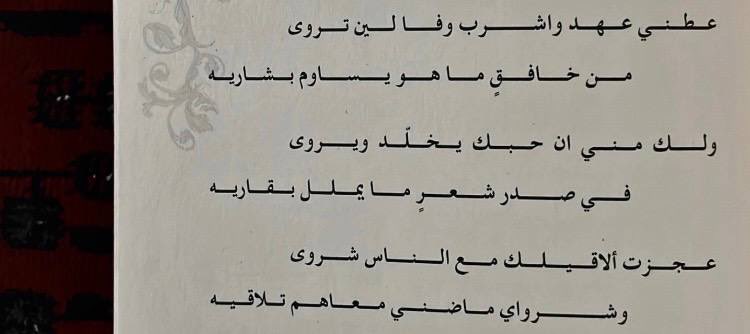 عطني عهد واشرب وفا لين تروى
من خافقٍ ما هو يساوم بشاريه
ولك مني ان حبك يخلّد ويروى
في صدر شعرٍ ما يملل بقاريه
عجزت ألاقيلك مع الناس شروى
وشرواي ماضني معاهم تلاقيه